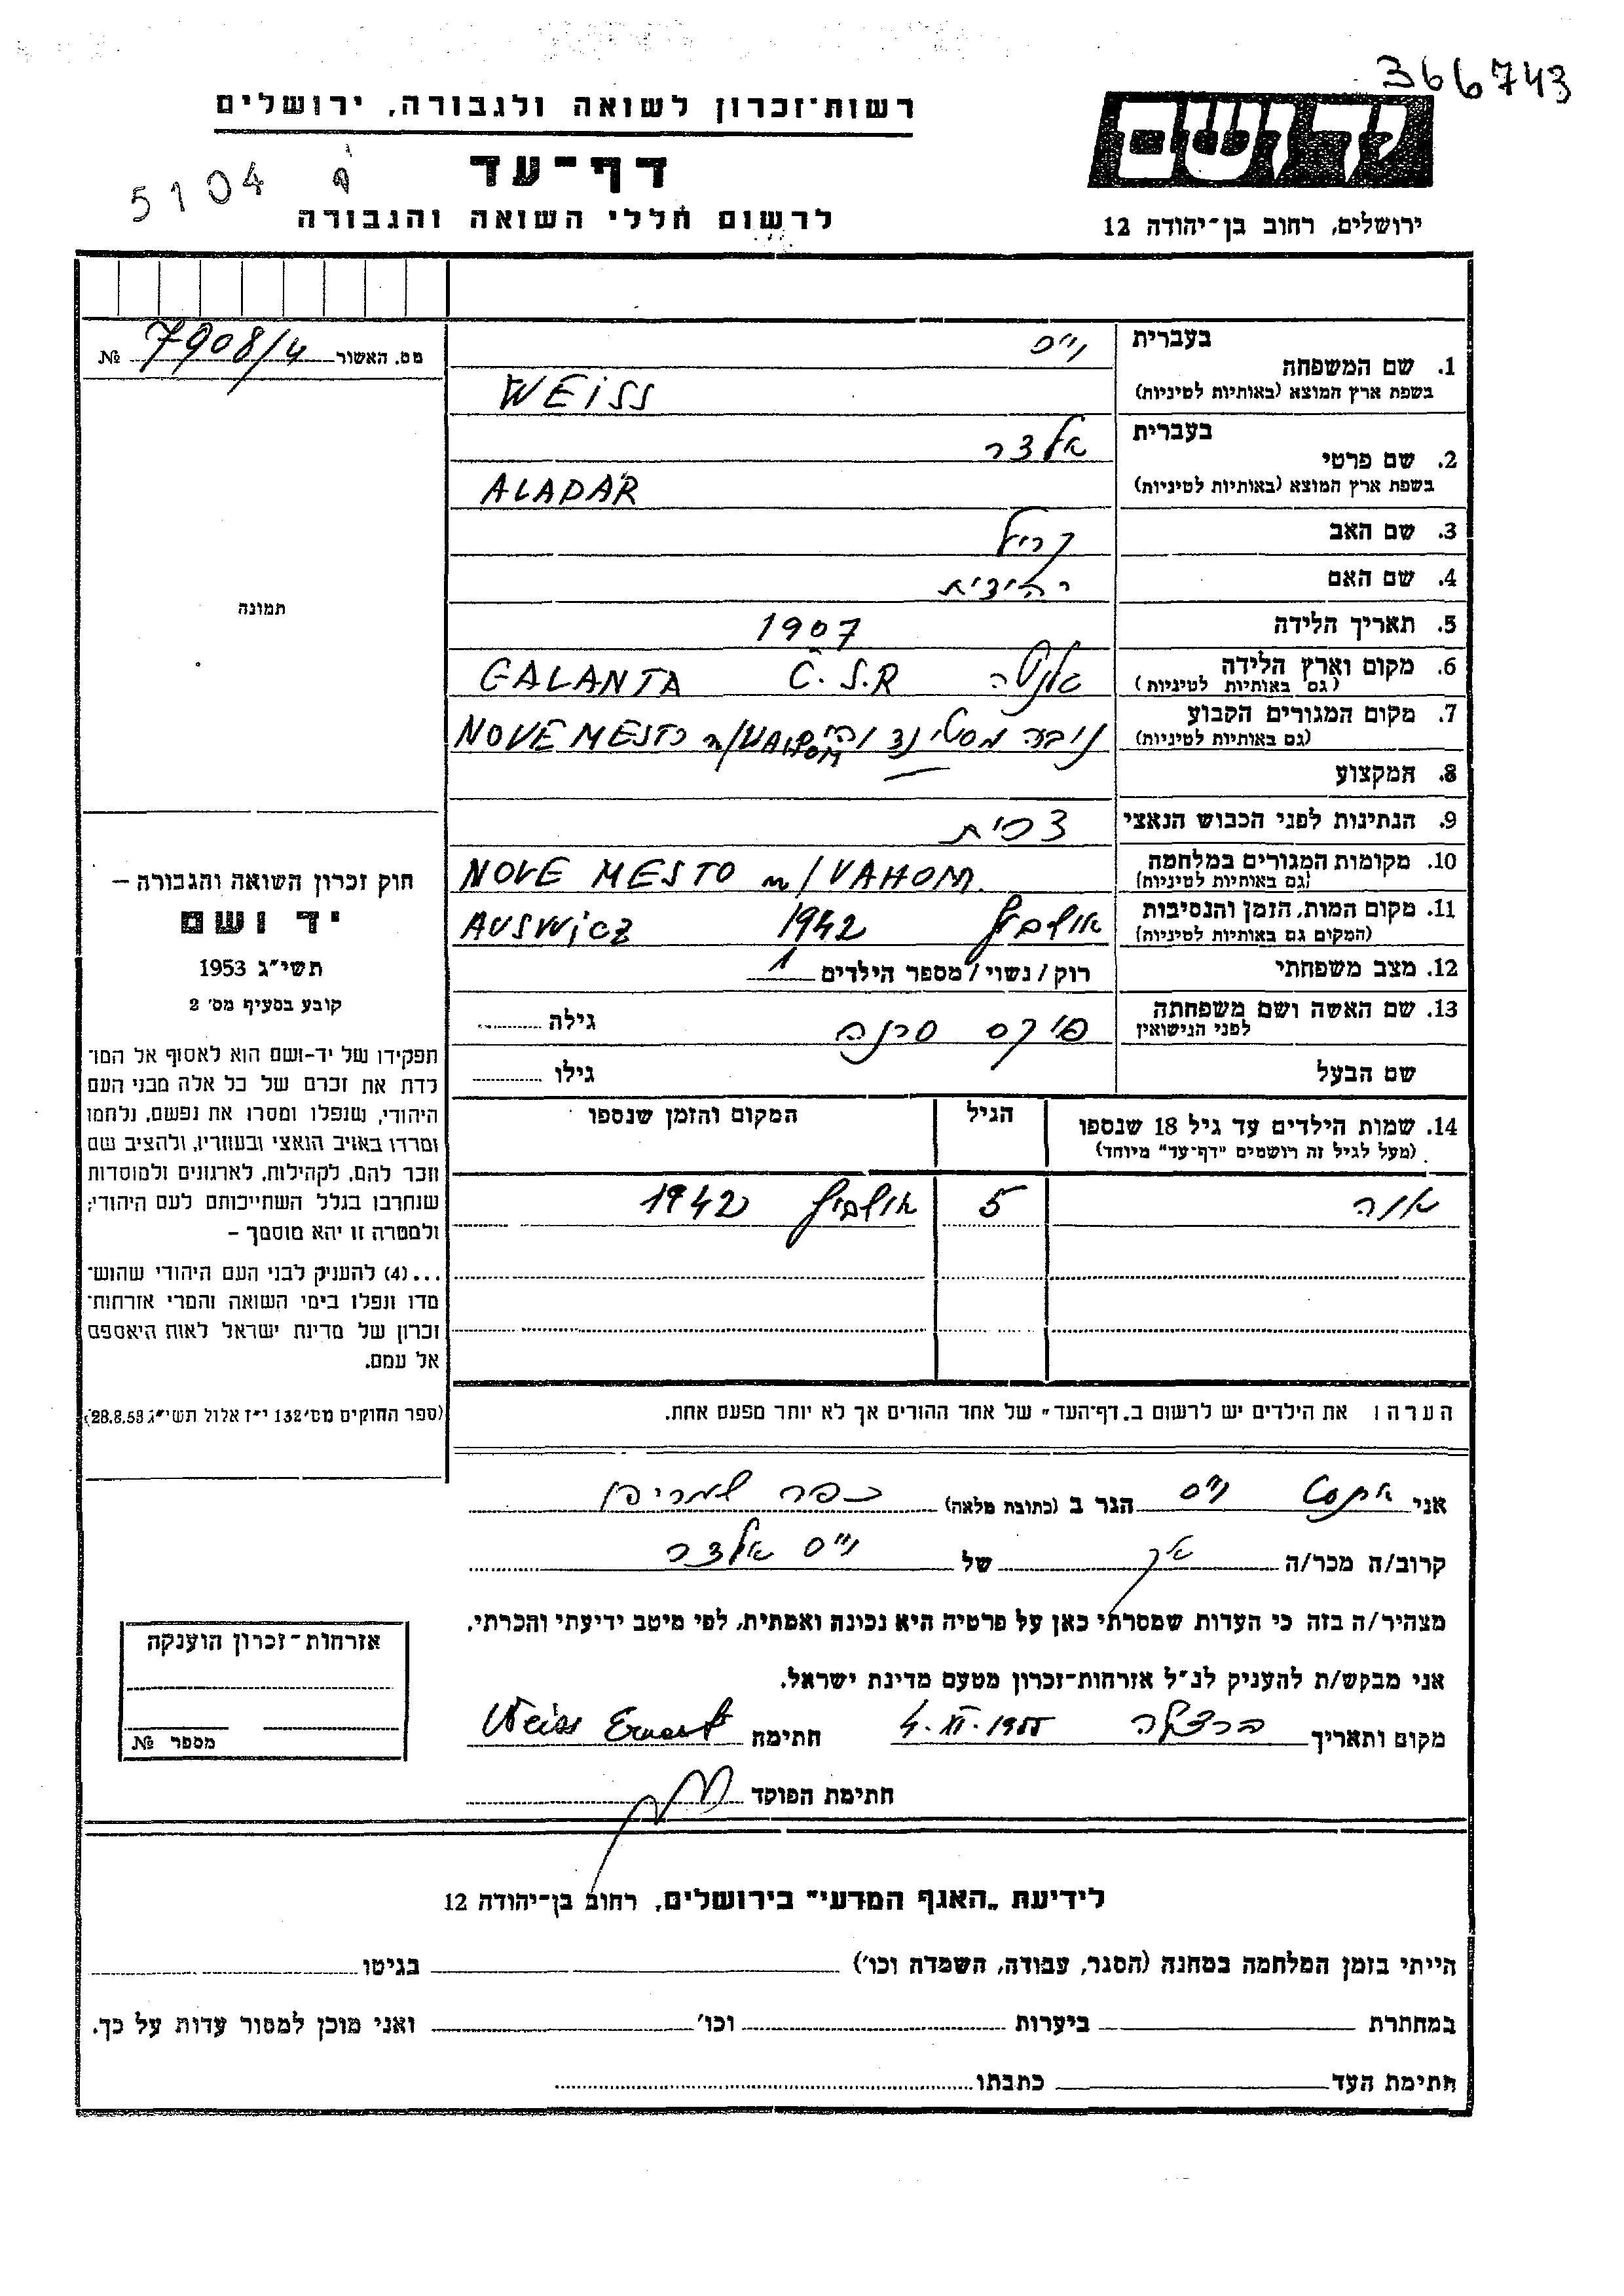 366743
רשות־זכרון לשואה ולגבורה, ירושלים
ידושם
דף־עד
5104
לרשום חללי השואה והגבורה
ירושלים, רחוב בן־יהודה 12
מס. האשור 7908/4 №
1. שם המשפחה בעברית וייס
בשפת ארץ המוצא (באותיות לטיניות) WEISS
2. שם פרטי בעברית אלדר
בשפת ארץ המוצא (באותיות לטיניות) ALADÁR
3. שם האב קריל
4. שם האם יהודית
5. תאריך הלידה 1907
6. מקום וארץ הלידה גלנטה Č.S.R GALANTA
(גם באותיות לטיניות)
7. מקום המגורים הקבוע NOVE MESTO n/VAHOM
(גם באותיות לטיניות)
8. המקצוע —
9. הנתינות לפני הכבוש הנאצי צ'כית
10. מקומות המגורים במלחמה NOVE MESTO n/VAHOM.
(גם באותיות לטיניות)
11. מקום המות, הזמן והנסיבות 1942 AUSWICZ
(המקום גם באותיות לטיניות)
12. מצב משפחתי רוק/נשוי/מספר הילדים 1
13. שם האשה ושם משפחתה פיקס סרנה גילה
לפני הנישואין
שם הבעל גילו
תמונה
חוק זכרון השואה והגבורה –
יד ושם
תשי״ג 1953
קובע בסעיף מס׳ 2
תפקידו של יד-ושם הוא לאסוף אל המו־
לדת את זכרם של כל אלה מבני העם
היהודי, שנפלו ומסרו את נפשם, נלחמו
ומרדו באויב הנאצי ובעוזריו, ולהציב שם
וזכר להם, לקהילות, לארגונים ולמוסדות
שנחרבו בגלל השתייכותם לעם היהודי;
ולמטרה זו יהא מוסמך –
...(4) להעניק לבני העם היהודי שהוש־
מדו ונפלו בימי השואה והמרי אזרחות־
זכרון של מדינת ישראל לאות היאספם
אל עמם.
(ספר החוקים מס׳ 132 י״ז אלול תשי״ג 28.8.53)
14. שמות הילדים עד גיל 18 שנספו הגיל המקום והזמן שנספו
(מעל לגיל זה רושמים ״דף־עד״ מיוחד)
אנה 5 1942
הערה: את הילדים יש לרשום ב„דף־העד״ של אחד ההורים אך לא יותר מפעם אחת.
אני ארנסט וייס הגר ב (כתובת מלאה) כפר שמריהו
קרוב/ה מכר/ה אח של וייס אלדר
מצהיר/ה בזה כי העדות שמסרתי כאן על פרטיה היא נכונה ואמתית, לפי מיטב ידיעתי והכרתי.
אני מבקש/ת להעניק לנ״ל אזרחות־זכרון מטעם מדינת ישראל.
מקום ותאריך הרצליה 4.XI.1955 חתימה Weiss Ernest
חתימת הפוקד
אזרחות־זכרון הוענקה
מספר №
לידיעת „האגף המדעי״ בירושלים, רחוב בן־יהודה 12
הייתי בזמן המלחמה במחנה (הסגר, עבודה, השמדה וכו׳) בגיטו
במחתרת ביערות וכו׳ ואני מוכן למסור עדות על כך.
חתימת העד כתבתו